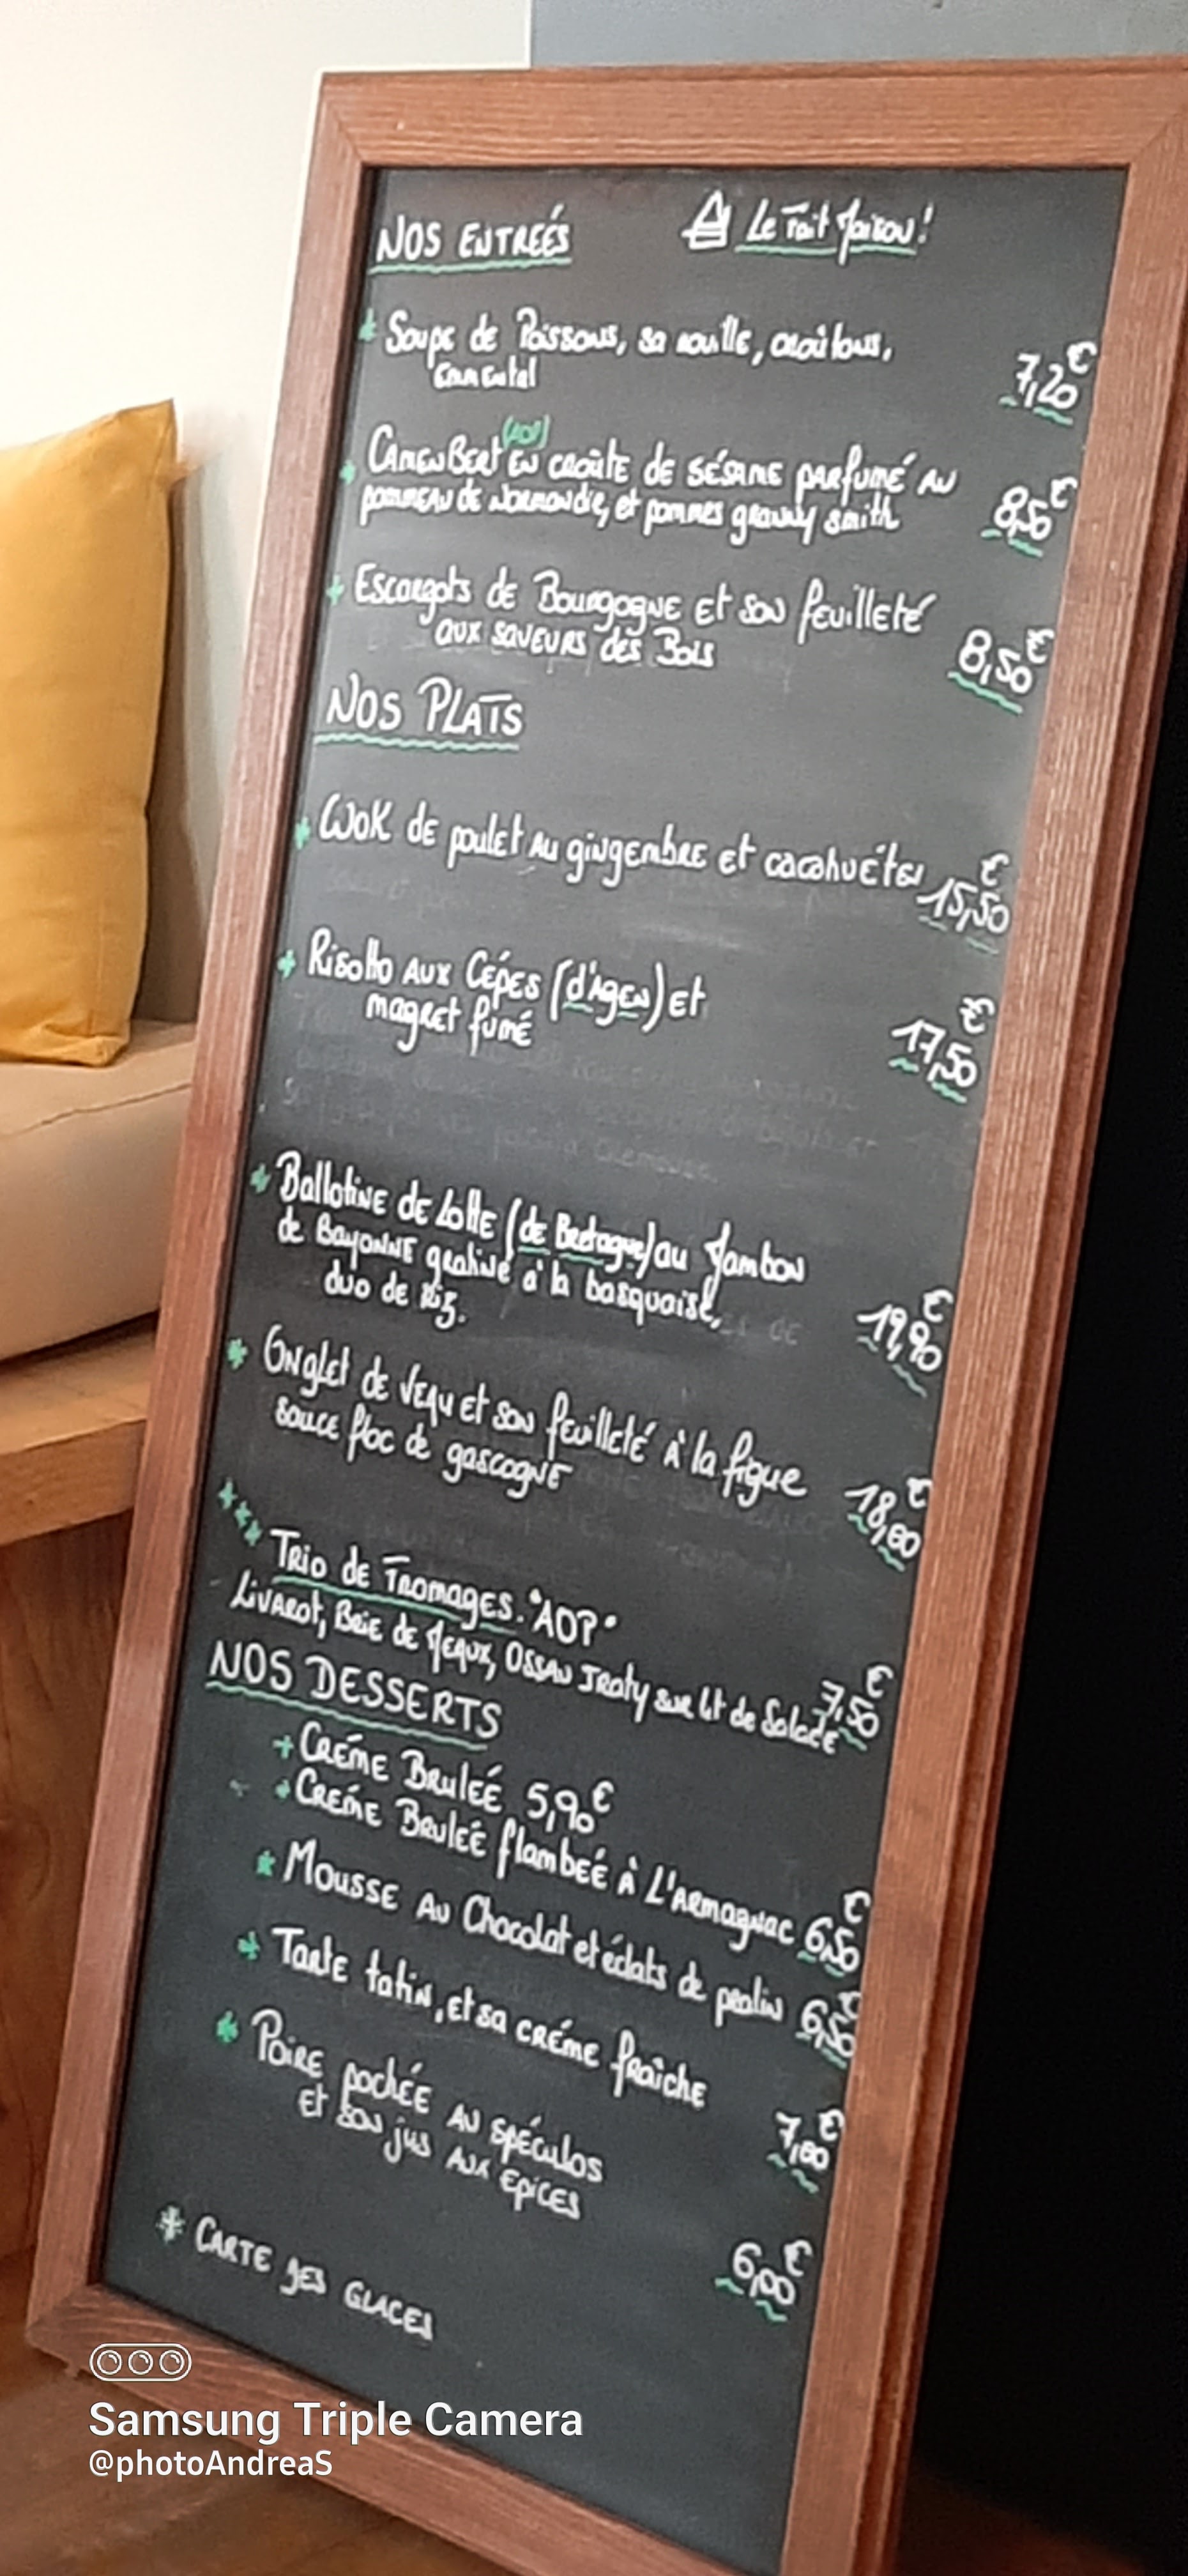 NOS ENTREÉS
Le Fait Maison!
Soupe de Poissons, sa rouille, croûtons,
emmental
7,20€
(AOP)
CAMEMBERT EN CROÛTE DE SÉSAME PARFUMÉ AU
POMMEAU DE NORMANDIE, et pommes granny smith
8,50€
Escargots de Bourgogne et son feuilleté
aux saveurs des Bois
8,50€
NOS PLATS
Wok de poulet au gingembre et cacahuétes
15,50€
Risotto aux Cépes (d'Agen) et
magret fumé
17,50€
Ballotine de Lotte (de Bretagne) au Jambon
de Bayonne gratiné à la basquaise,
duo de Riz.
19,90€
Onglet de Veau et son feuilleté à la figue
sauce floc de gascogne
18,00€
Trio de Fromages. "AOP"
Livarot, Brie de Meaux, Ossau Iraty sur lit de Salade
7,50€
NOS DESSERTS
Créme Bruleé 5,90€
Creéme Bruleé flambeé à L'Armagnac 6,50€
Mousse au Chocolat et éclats de pralin 6,50€
Tarte tatin, et sa créme fraîche
7,00€
Poire pochée au spéculos
et son jus aux epices
6,00€
CARTE DES GLACES
Samsung Triple Camera
@photoAndreaS